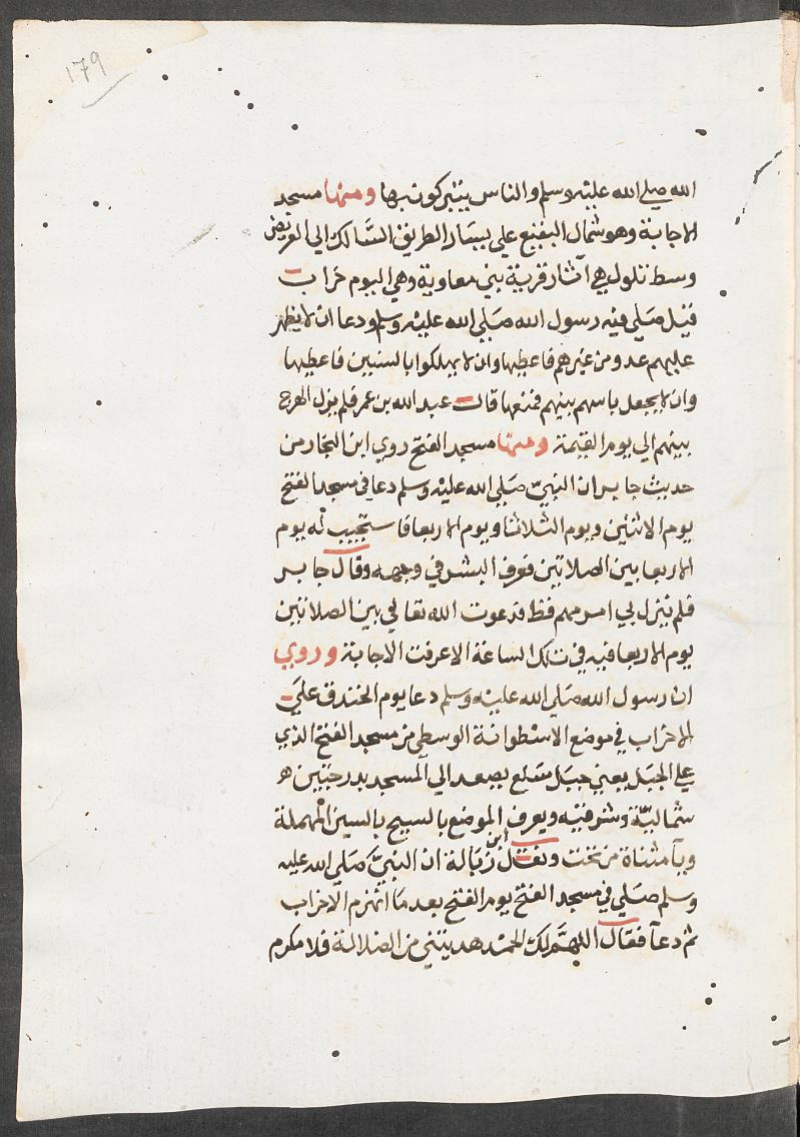 ١٦٩
الله صلى الله عليه وسلم والناس يتبركون بها ومنها مسجد
الاجابة وهو شمال البقيع علي يسار الطريق السالك الي العريض
وسط تلول هي آثار قرية بني معاوية وهي اليوم خراب
قيل صلي فيه رسول الله صلي الله عليه وسلم ودعا ان لا يظهر
عليهم عدو من غيرهم فاعطيها وان لا يهلكوا بالسنين فاعطيها
وان لا يجعل باسهم بينهم فمنعها قال عبد الله بن عمر فلم يزل الهرج
بينهم الي يوم القيمة ومنها مسجد الفتح روي ابن النجار من
حديث جابر ان النبي صلي الله عليه وسلم دعا في مسجد الفتح
يوم الاثنين ويوم الثلاثا ويوم الاربعا فاستجيب له يوم
الاربعا بين الصلاتين فعرف البشر في وجهه وقال جابر
فلم ينزل بي امر مهم قط فدعوت الله تعالي بين الصلاتين
يوم الاربعا فيه في تلك الساعة الا عرفت الاجابة وروي
ان رسول الله صلي الله عليه وسلم دعا يوم الخندق علي
الاحزاب في موضع الاسطوانة الوسطي من مسجد الفتح الذي
علي الجبل يعني جبل سلع يصعد الي المسجد بدرجتين
شمالية وشرقية ويعرف الموضع بالسيح بالسين المهملة
وبآ مثناة من تحت ونقل ابن زبالة ان النبي صلي الله عليه
وسلم صلي في مسجد الفتح يوم الفتح بعد ما انهزم الاحزاب
ثم دعآ فقال اللهم لك الحمد هديتني من الضلالة فلا مكرم